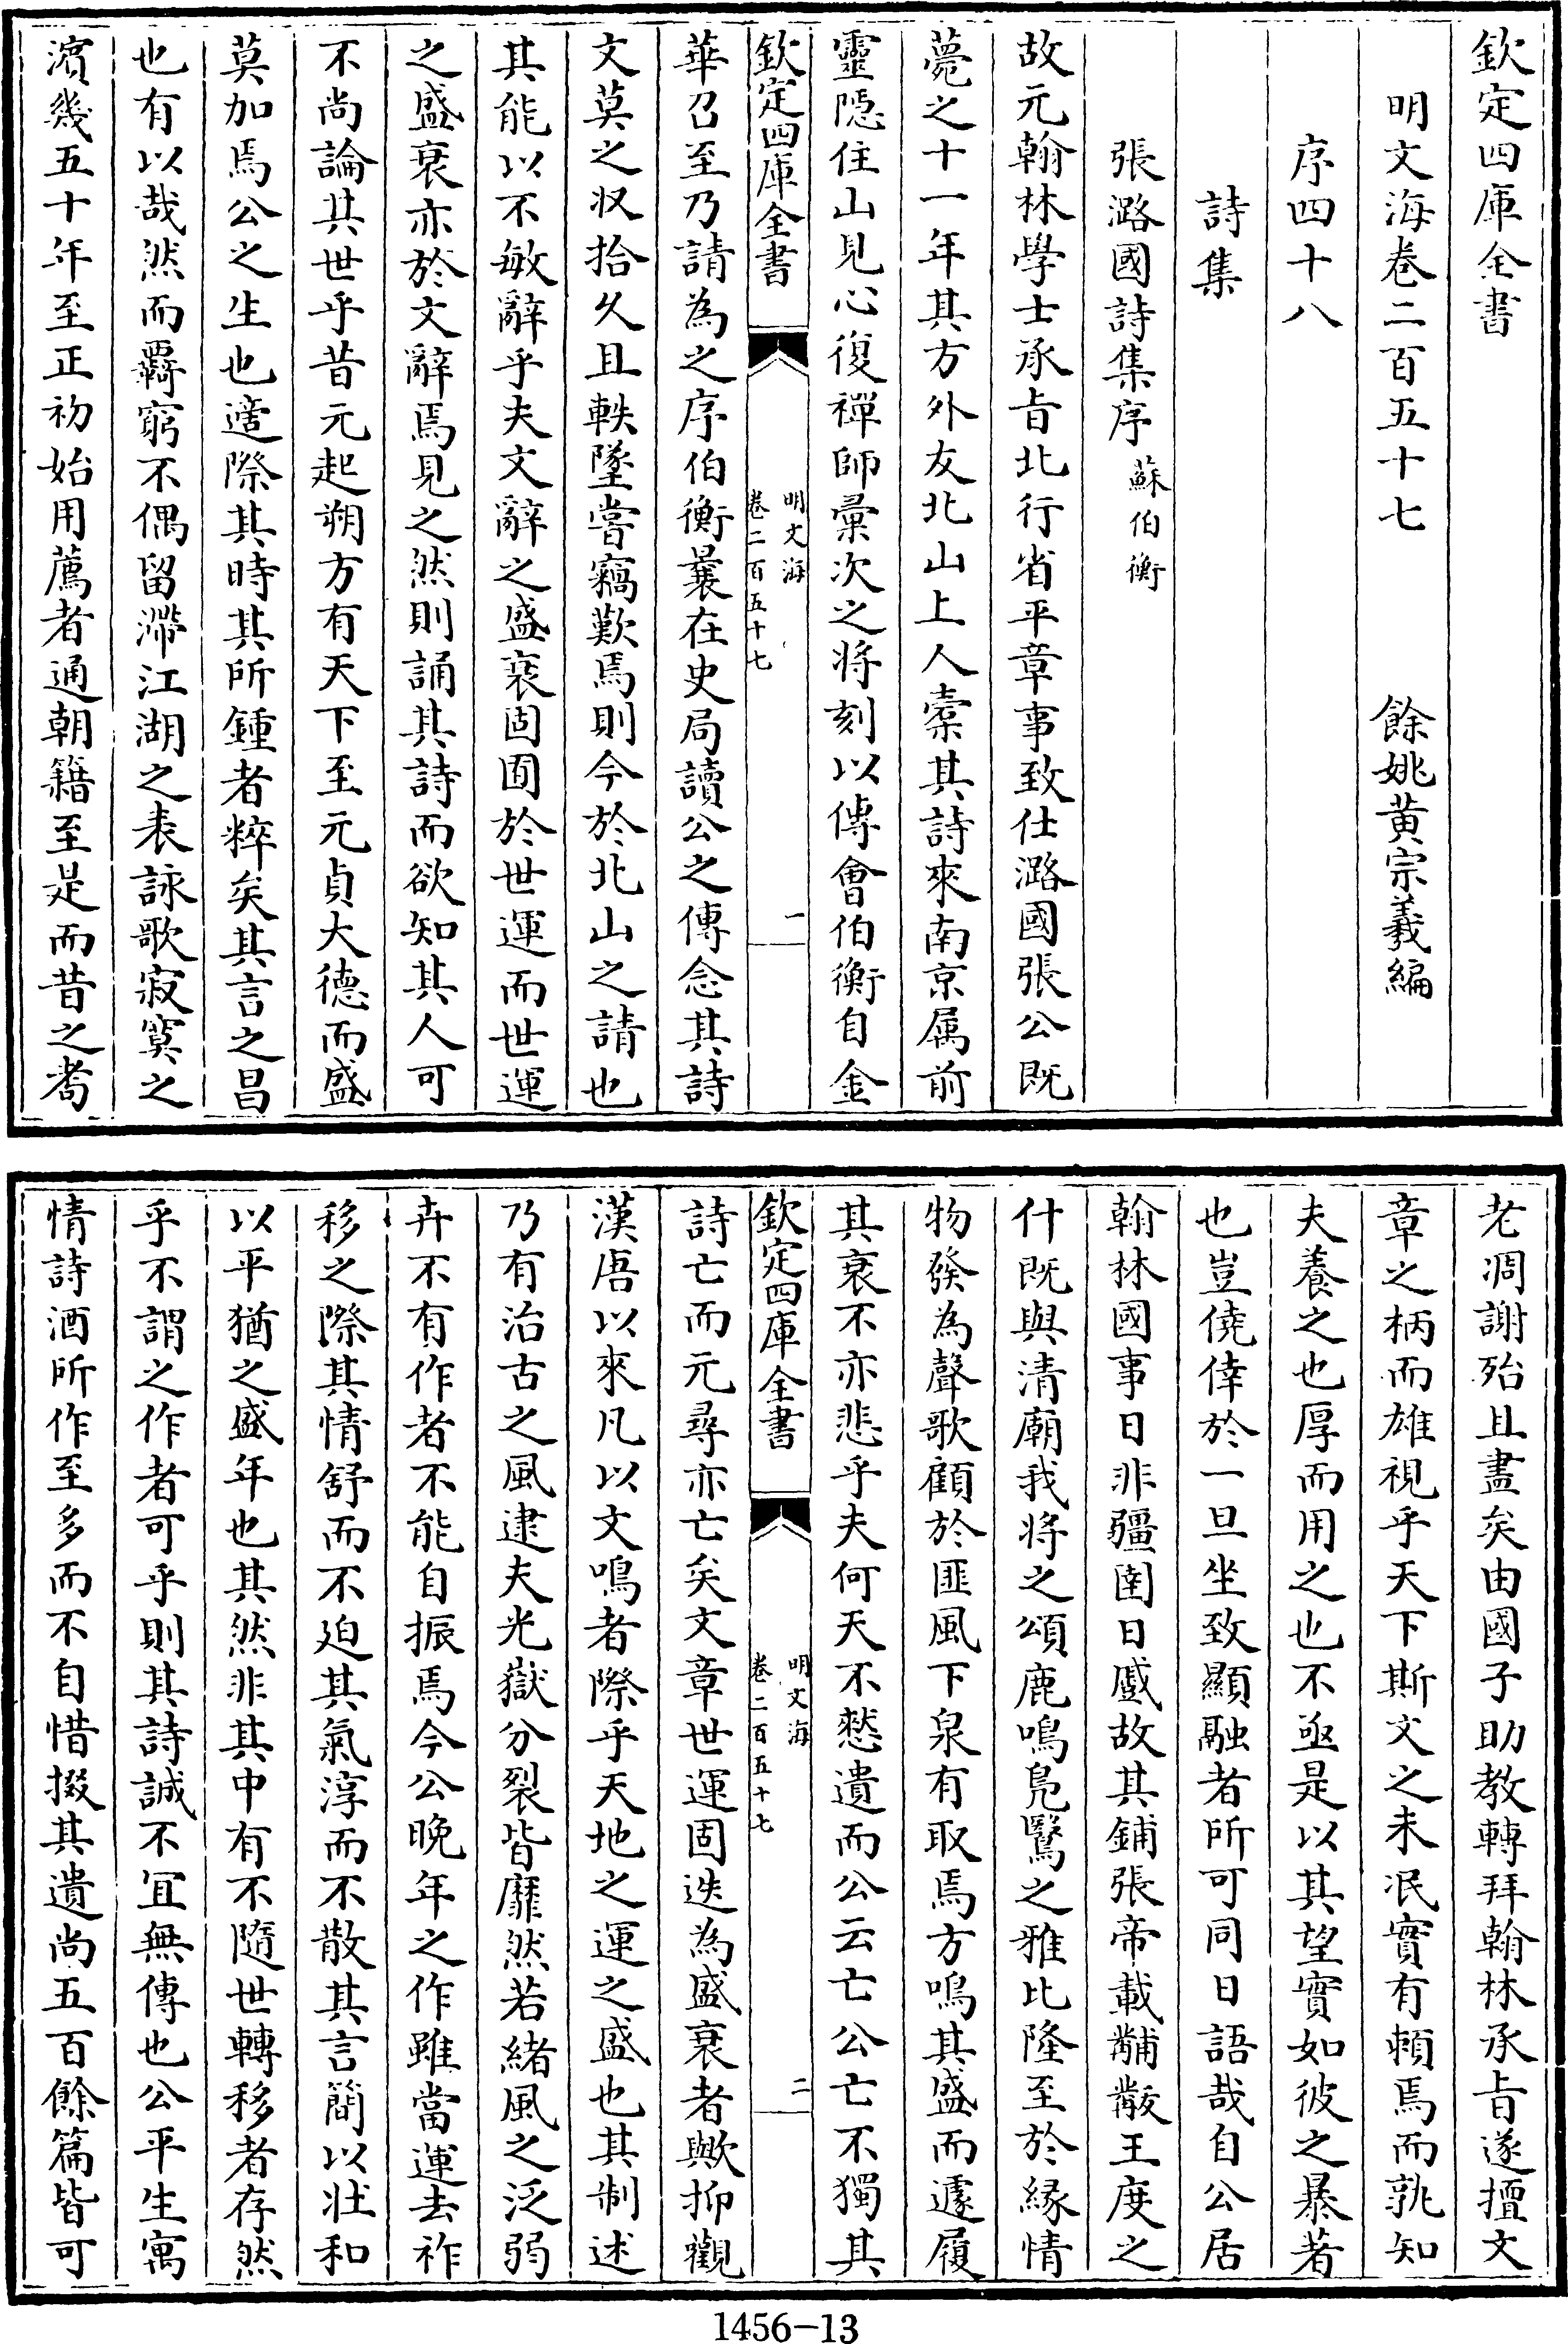 欽定四庫全書
明文海卷二百五十七　餘姚黃宗羲編
序四十八
詩集
張潞國詩集序蘇伯衡
故元翰林學士承旨北行省平章事致仕潞國張公既
薨之十一年其方外友北山上人槖其詩來南京属前
靈隠住山見心復禪師彚次之將刻以傳會伯衡自金
欽定四庫全書
明文海
卷二百五十七
一
華召至乃請為之序伯衡曩在史局讀公之傳念其詩
文莫之収拾久且軼墜嘗竊歎焉則今於北山之請也
其能以不敏辭乎夫文辭之盛衰固囿於世運而世運
之盛衰亦於文辭焉見之然則誦其詩而欲知其人可
不尚論其世乎昔元起朔方有天下至元貞大德而盛
莫加焉公之生也適際其時其所鍾者粹矣其言之昌
也有以哉然而覊窮不偶留滯江湖之表詠歌寂寞之
濱幾五十年至正初始用薦者通朝籍至是而昔之耈
老凋謝殆且盡矣由國子助教轉拜翰林承旨遂擅文
章之柄而雄視乎天下斯文之未泯實有頼焉而孰知
夫養之也厚而用之也不亟是以其望實如彼之暴著
也豈僥倖於一旦坐致顯融者所可同日語哉自公居
翰林國事日非疆圉日蹙故其鋪張帝載黼黻王度之
什既與清廟我將之頌鹿鳴鳬鷖之雅比隆至於縁情
物發為聲歌顧於匪風下泉有取焉方鳴其盛而遽履
其衰不亦悲乎夫何天不憖遺而公云亡公亡不獨其
欽定四庫全書
明文海
卷二百五十七
二
詩亡而元尋亦亡矣文章世運固迭為盛衰者歟抑觀
漢唐以來凡以文鳴者際乎天地之運之盛也其制述
乃有治古之風逮夫光嶽分裂皆靡然若緒風之泛弱
卉不有作者不能自振焉今公晚年之作雖當運去祚
移之際其情舒而不迫其氣淳而不散其言簡以壯和
以平猶之盛年也其然非其中有不隨世轉移者存然
乎不謂之作者可乎則其詩誠不冝無傳也公平生寓
情詩酒所作至多而不自惜掇其遺尚五百餘篇皆可
1456-13